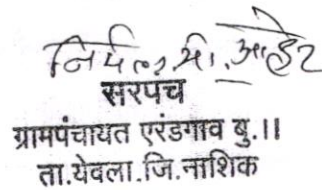 निर्मला मी. आहेर
सरपंच
ग्रामपंचायत एरंडगाव बु.।।
ता.येवला.जि.नाशिक